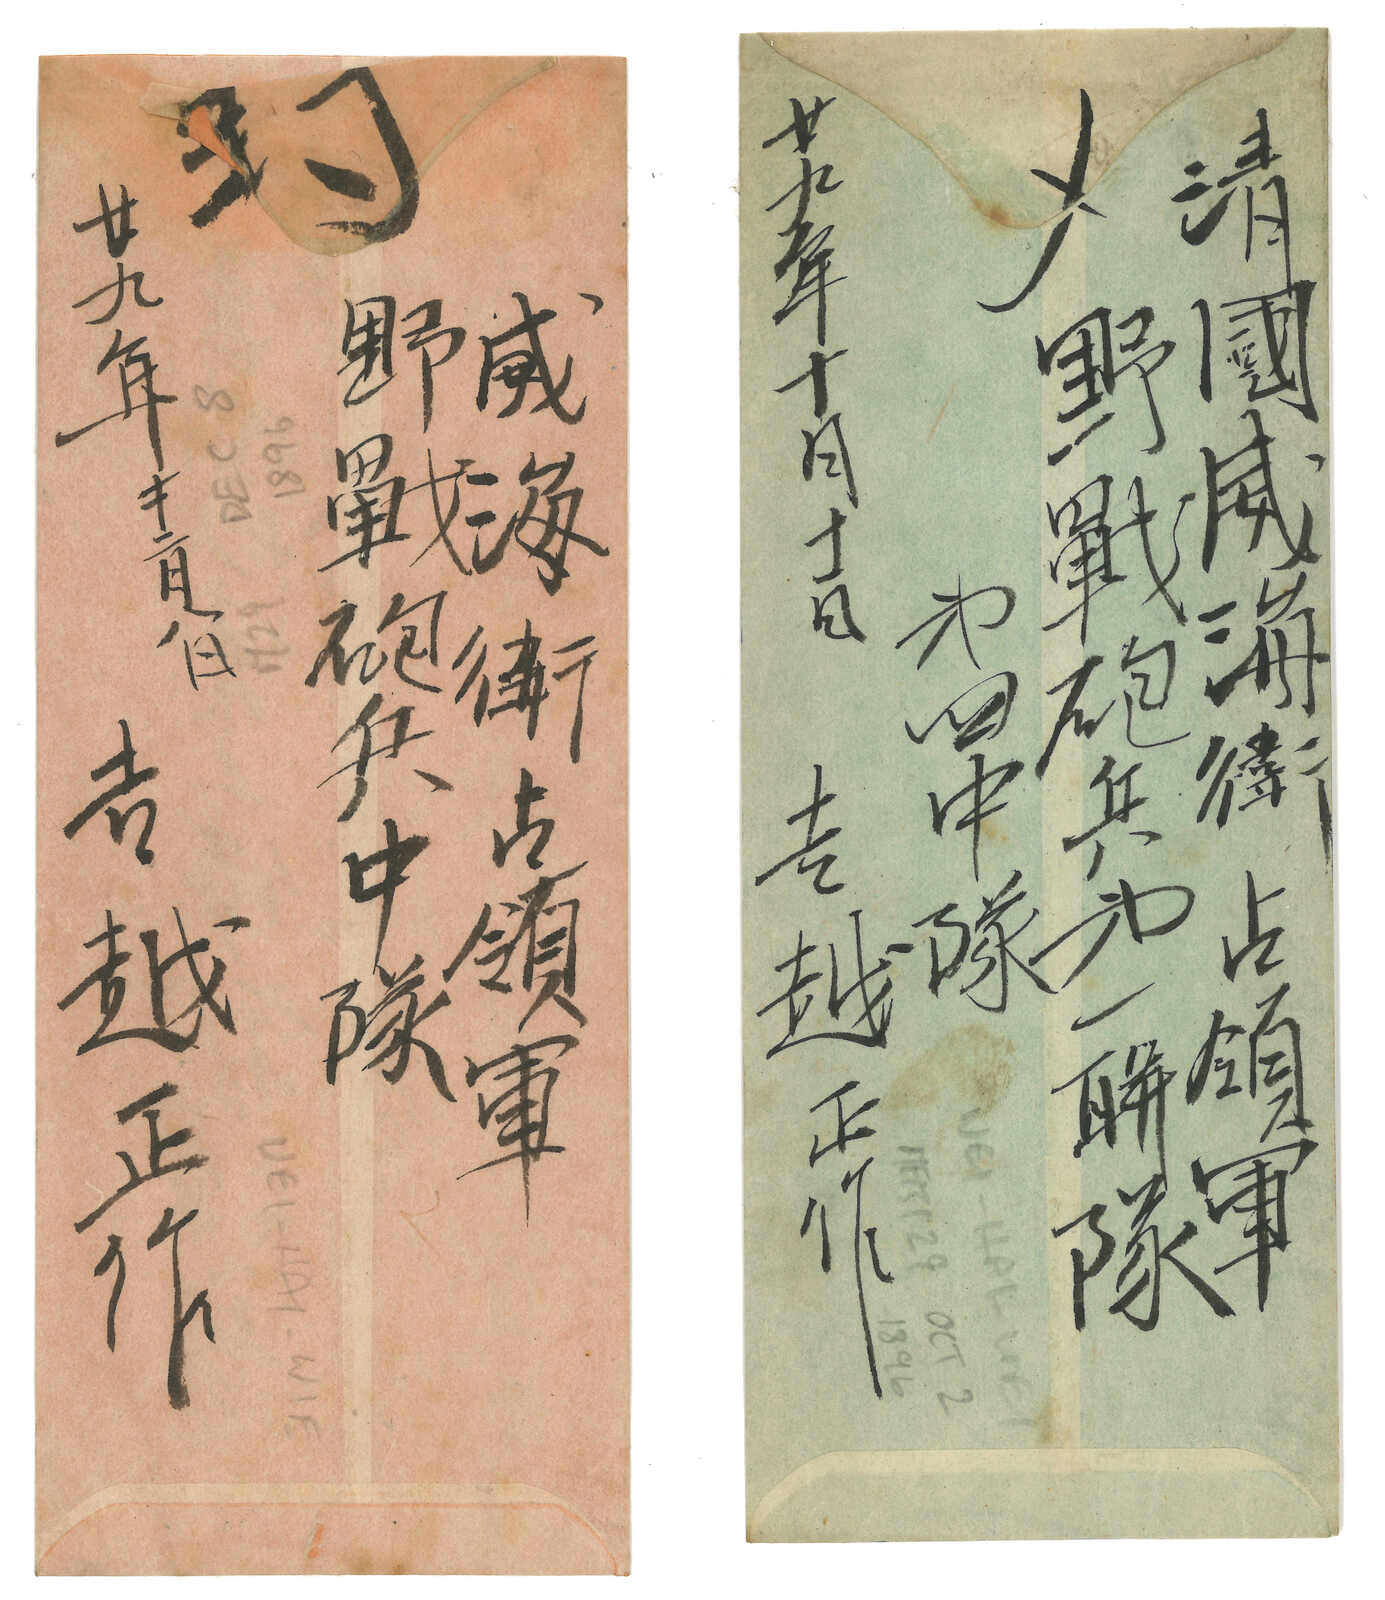 威海衛占領軍
野戰砲兵中隊
廿九年十二月八日
吉越正作
DEC 8
1896
M29
WEI-HAI-WIE
清國威海衛占領軍
野戰砲兵㐧一聯隊
㐧四中隊
廿九年十月十一日
吉越正作
WEI-HAI-WEI
MEIJI 29 OCT 2
1896